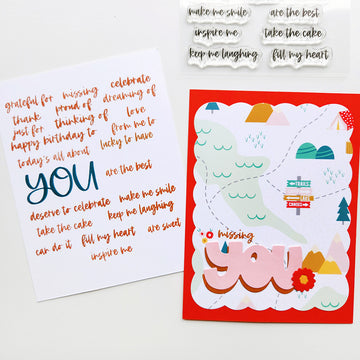 make me smile are the best
inspire me take the cake
keep me laughing fill my heart
grateful for missing celebrate
thank proud of dreaming of
just for thinking of love
happy birthday to from me to
today's all about lucky to have
YOU are the best
deserve to celebrate make me smile
take the cake keep me laughing
can do it fill my heart are sweet
inspire me
TRAILS
CANOES
missing
YOU